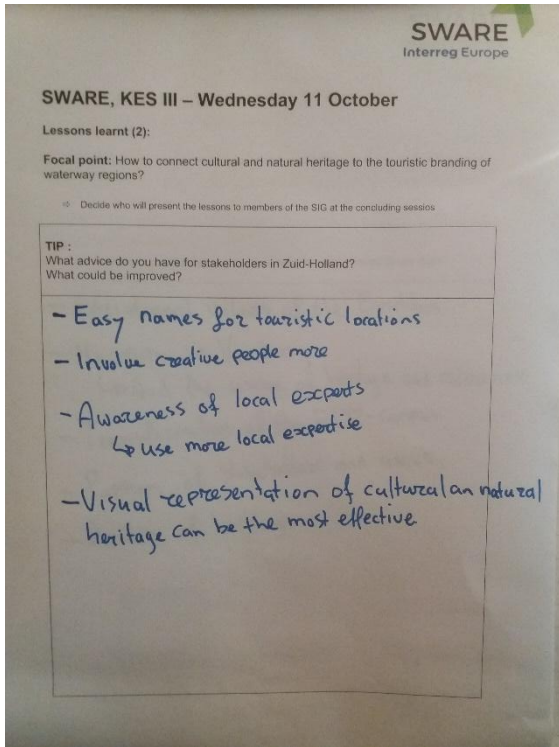 SWARE
Interreg Europe
SWARE, KES III – Wednesday 11 October
Lessons learnt (2):
Focal point: How to connect cultural and natural heritage to the touristic branding of
waterway regions?
⇨ Decide who will present the lessons to members of the SIG at the concluding sessios
TIP :
What advice do you have for stakeholders in Zuid-Holland?
What could be improved?
- Easy names for touristic locations
- Involve creative people more
- Awareness of local experts
↳ use more local expertise
- Visual representation of cultural an natural
heritage can be the most effective